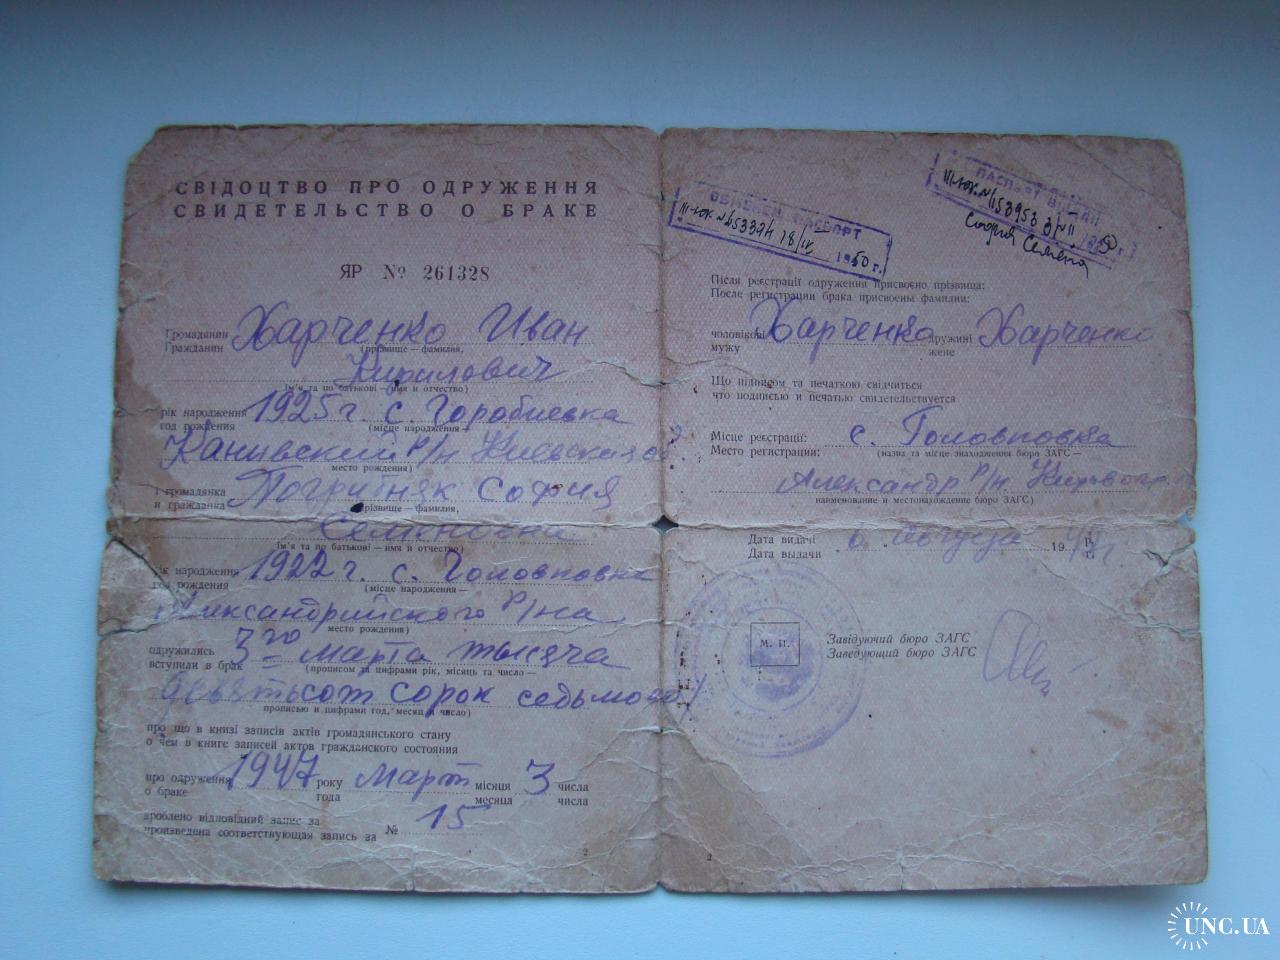 СВІДОЦТВО ПРО ОДРУЖЕННЯ
СВИДЕТЕЛЬСТВО О БРАКЕ
ЯР № 261328
Громадянин
Гражданин
Харченко Иван
(прізвище — фамилия,
Кирилович
ім'я та по батькові — имя и отчество)
рік народження
год рождения
1925 г. с. Горобиевка
(місце народження —
Каневский р/н Киевская об
место рождения)
і громадянка
и гражданка
Погрибняк София
прізвище — фамилия,
Семеновна
ім'я та по батькові — имя и отчество)
рік народження
год рождения
1922 г. с. Головковка
(місце народження —
Александрийского р/на
место рождения)
одружились
вступили в брак
3го марта тысяча
(прописом та цифрами рік, місяць та число —
девятьсот сорок седьмого
прописью и цифрами год, месяц и число)
про що в книзі записів актів громадянського стану
о чем в книге записей актов гражданского состояния
про одруження
о браке
1947 року
года
Март місяця
месяца
3 числа
числа
зроблено відповідний запис за
произведена соответствующая запись за № 15
2
ОБМЕНЕН ПАСПОРТ
1950 г.
ПАСПОРТ
София Семена
Після реєстрації одруження присвоєно прізвища:
После регистрации брака присвоены фамилии:
чоловікові
мужу
Харченко
дружині
жене
Харченко
Що підписом та печаткою свідчиться
что подписью и печатью свидетельствуется
Місце реєстрації:
Место регистрации:
с. Головковка
(назва та місце знаходження бюро ЗАГС —
Александр р/н Кировогр.
наименование и местонахождение бюро ЗАГС)
Дата видачі
Дата выдачи
6 августа 19 р.
г.
М. П.
Завідуючий бюро ЗАГС
Заведующий бюро ЗАГС
2
UNC.UA